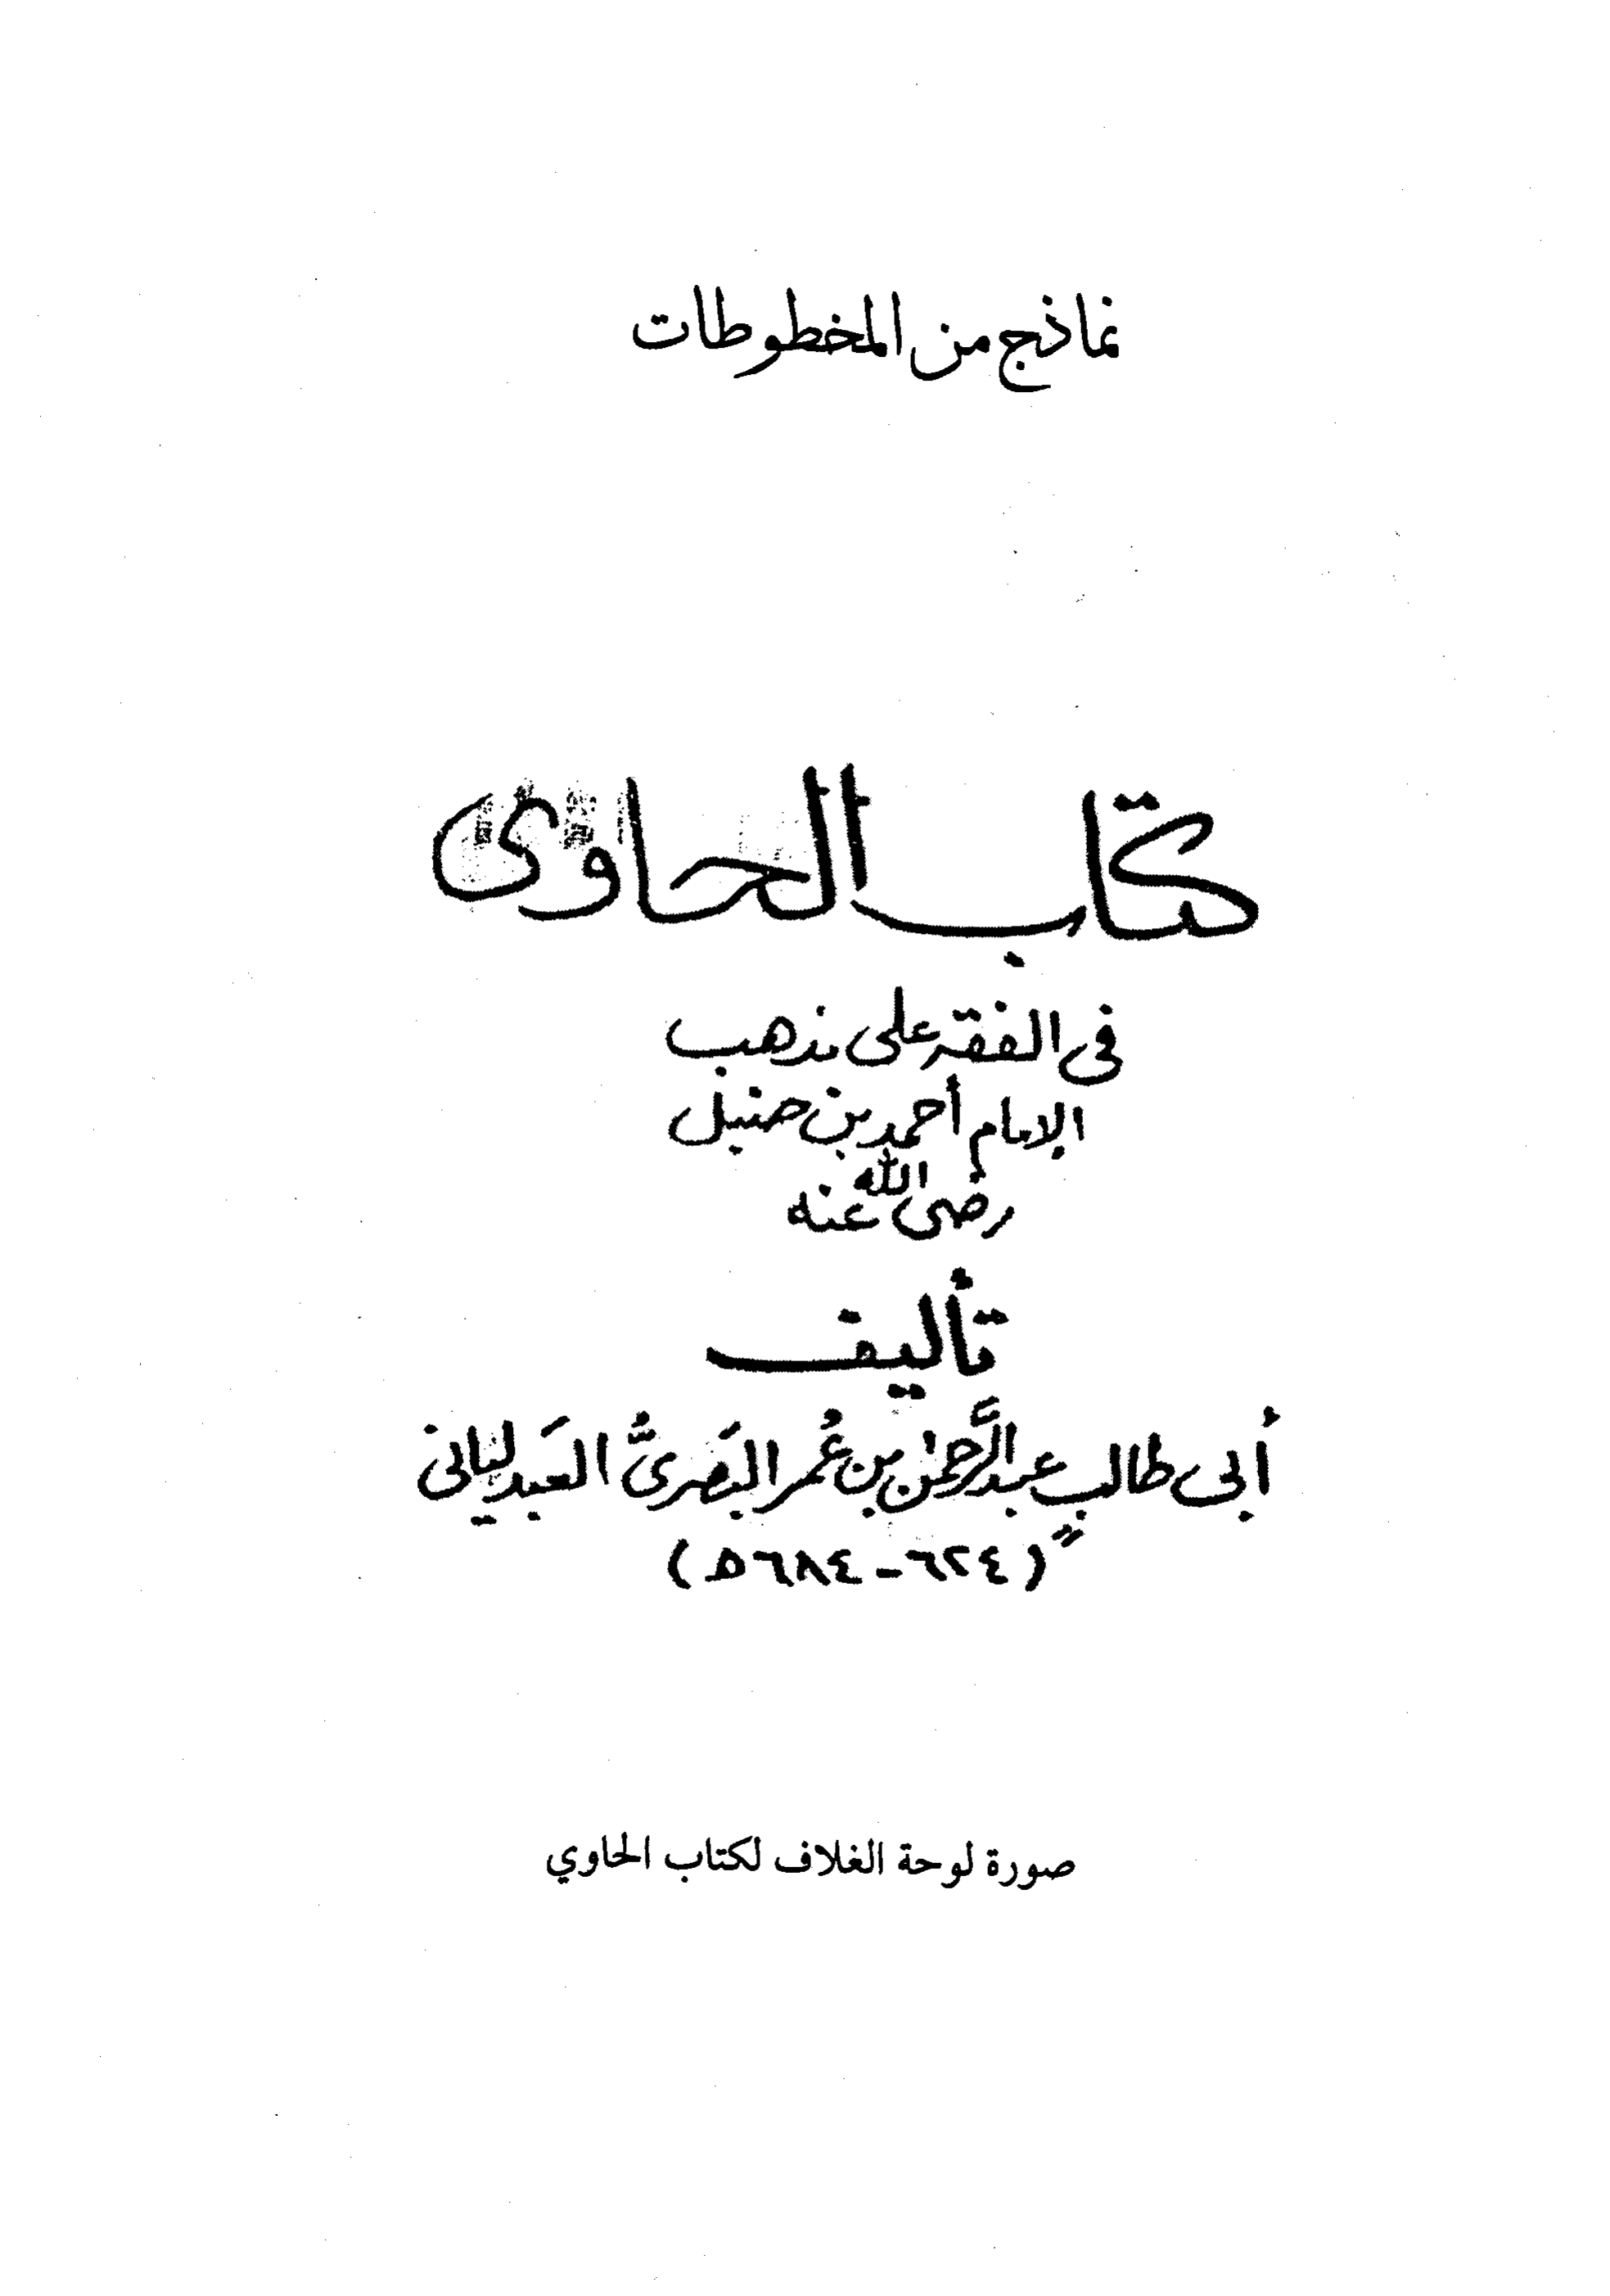 نماذج من المخطوطات
كتاب الحاوى
فى الفقه على مذهب
الإمام أحمد بن حنبل
رضى الله عنه
تأليف
أبى طالبٍ عبد الرَّحمٰن بن عُمر البَصرىُّ العَبدليانى
(٦٢٤ - ٦٨٤ ه)
صورة لوحة الغلاف لكتاب الحاوي